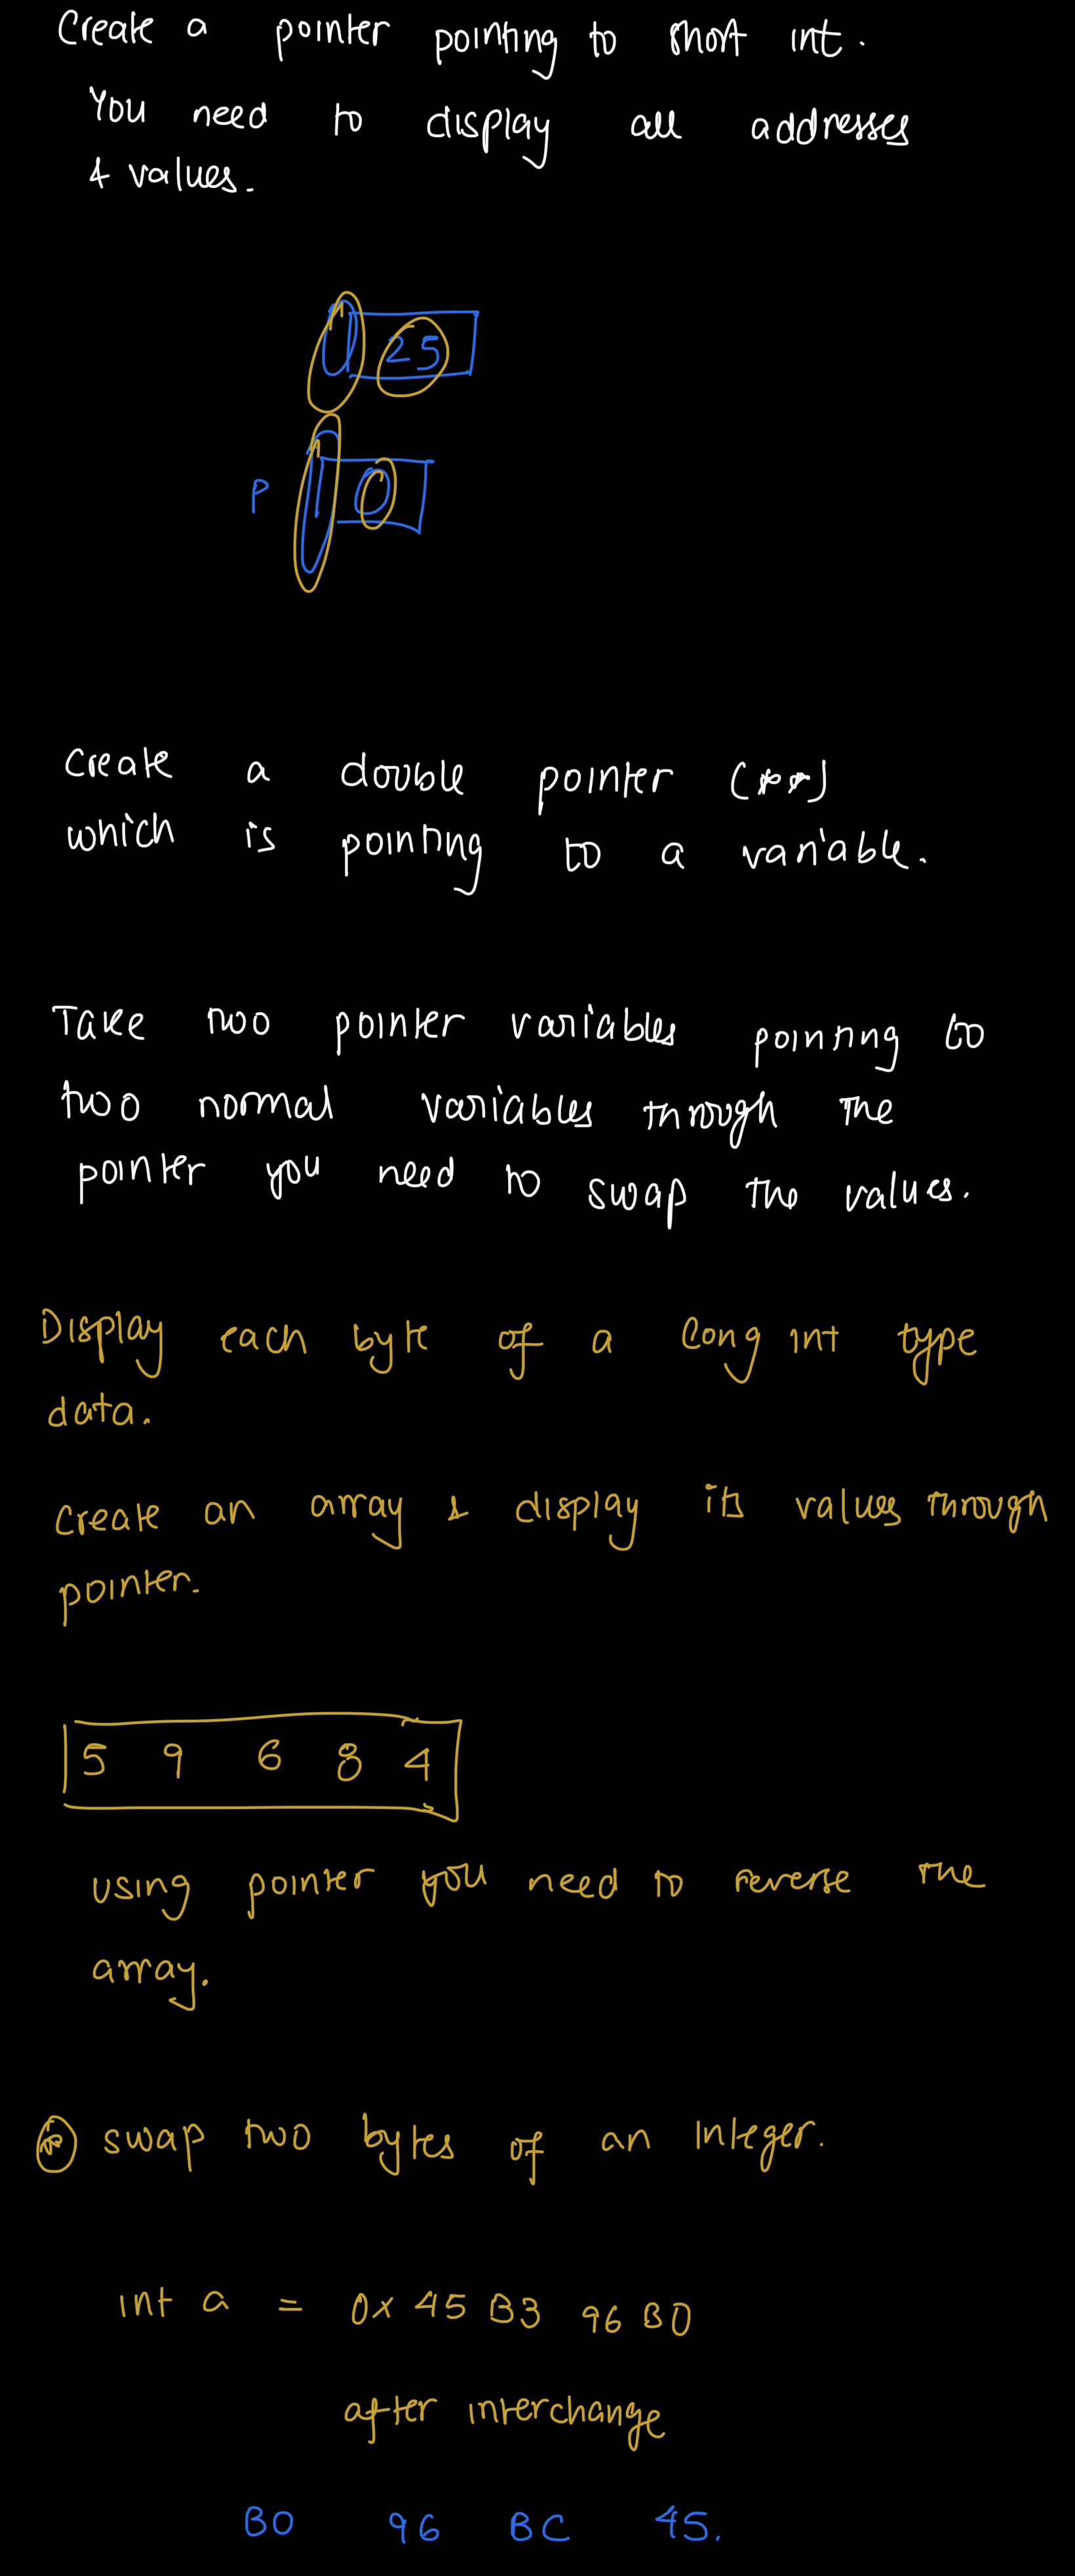 Create a pointer pointing to short int.
You need to display all addresses
& values.
25
P 0
Create a double pointer (**)
which is pointing to a variable.
Take two pointer variables pointing to
two normal variables through the
pointer you need to swap the values.
Display each byte of a long int type
data.
Create an array & display its values through
pointer.
5 9 6 8 4
using pointer you need to reverse the
array.
* swap two bytes of an Integer.
int a = 0x 45 B3 96 B0
after interchange
B0 96 BC 45.